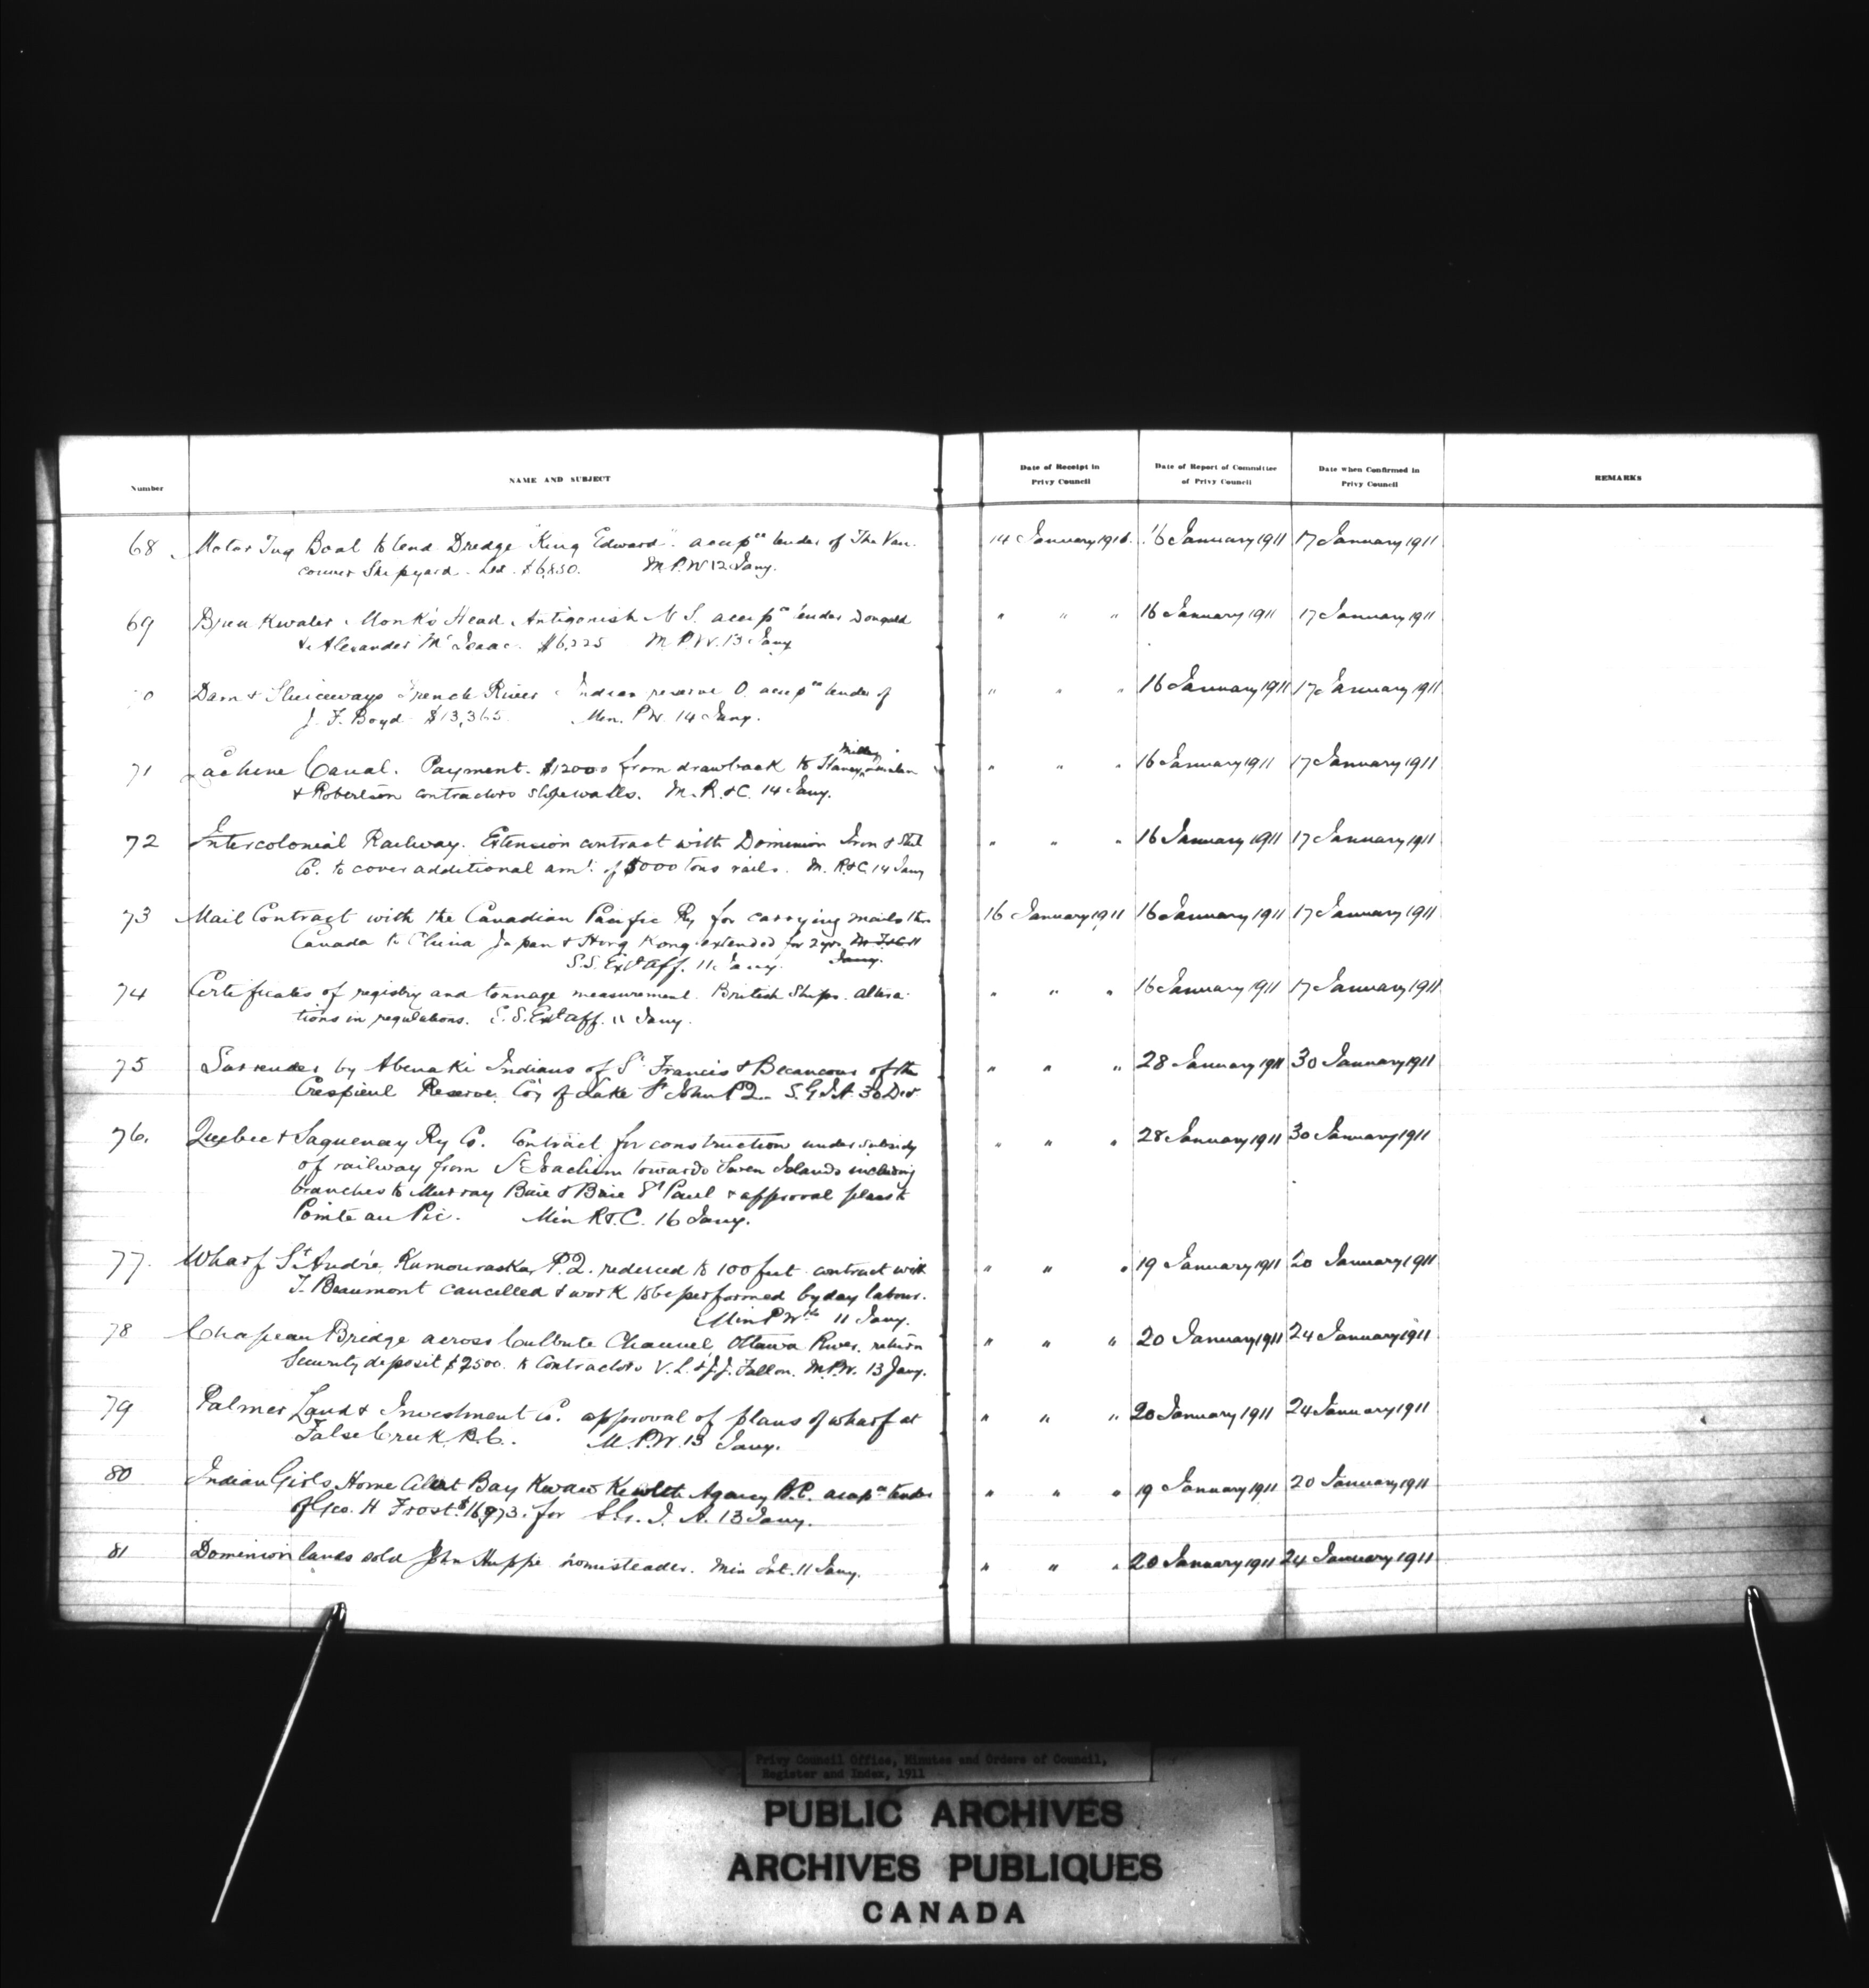 Number
NAME AND SUBJECT
Date of Receipt in
Privy Council
Date of Report of Committee
of Privy Council
Date when Confirmed in
Privy Council
REMARKS
68 Motor Tug Boat to tend Dredge "King Edward". accep<sup>ce</sup> tender of The Van- 14 January 1911. 16 January 1911 17 January 1911
couver Shipyard. Ltd. $6,850. M.P.W 12 Jany.
69 Breakwater Monk's Head Antigonish N.S. accep<sup>ce</sup> tender Dougald " " " 16 January 1911 17 January 1911
& Alexander McIsaac. $6,225 M.P.W. 13 Jany
0 Dam & Sluiceways French River Indian reserve O. accep<sup>ce</sup> tender of " " " 16 January 1911 17 January 1911
J. F. Boyd $13,365 Min. P.W. 14 Jany.
71 Lachine Canal. Payment. $12000 from drawback to Haney, Miller, Quinlan " " " 16 January 1911 17 January 1911
& Robertson contractors slope walls. M. R. & C. 14 Jany.
72 Intercolonial Railway. Extension contract with Dominion Iron & Steel " " " 16 January 1911 17 January 1911
Co. to cover additional amt. of 5000 tons rails. M. R&C. 14 Jany
73 Mail Contract with the Canadian Pacific Ry for carrying mails thro 16 January 1911 16 January 1911 17 January 1911
Canada to China Japan & Hong Kong extended for 2 yrs. M. T&C 11
S.S. Ext Aff. 11 Jany. Jany.
74 Certificates of registry and tonnage measurement. British Ships. altera- " " " 16 January 1911 17 January 1911
tions in regulations. S.S. Ext Aff. 11 Jany.
75 Surrender by Abenaki Indians of St Francis & Becancour of the " " " 28 January 1911 30 January 1911
Crespieul Reserve. Co'y of Lake St John P.Q. S.G.I.A. 30 Decr
76. Quebec & Saguenay Ry Co. Contract for construction under subsidy " " " 28 January 1911 30 January 1911
of railway from St Joachim towards Seven Islands including
branches to Murray Baie & Baie St Paul & approval plans to
Pointe au Pic. Min R&C. 16 Jany.
77. Wharf St André, Kamouraska, P.Q. reduced to 100 feet contract with " " " 19 January 1911 20 January 1911
T. Beaumont cancelled & work to be performed by day labour.
Min P W<sup>ks</sup> 11 Jany.
78 Chapeau Bridge across Culbute Channel, Ottawa River. return " " " 20 January 1911 24 January 1911
Security deposit $2500. to Contractors V. L. & J. J. Fallon. M.P.W. 13 Jany.
79 Palmer Land & Investment Co. approval of plans of wharf at " " " 20 January 1911 24 January 1911
False Creek, B.C. M.P.W. 13 Jany.
80 Indian Girls Home Alert Bay Kwaw Kewlth Agency B.C. accep<sup>ce</sup> tender " " " 19 January 1911 20 January 1911
of Geo. H Frost. $16,973. for S.G. I. A. 13 Jany.
81 Dominion lands sold John Huppe homesteader. Min Int. 11 Jany. " " " 20 January 1911 24 January 1911
Privy Council Office, Minutes and Orders of Council,
Register and Index, 1911
PUBLIC ARCHIVES
ARCHIVES PUBLIQUES
CANADA